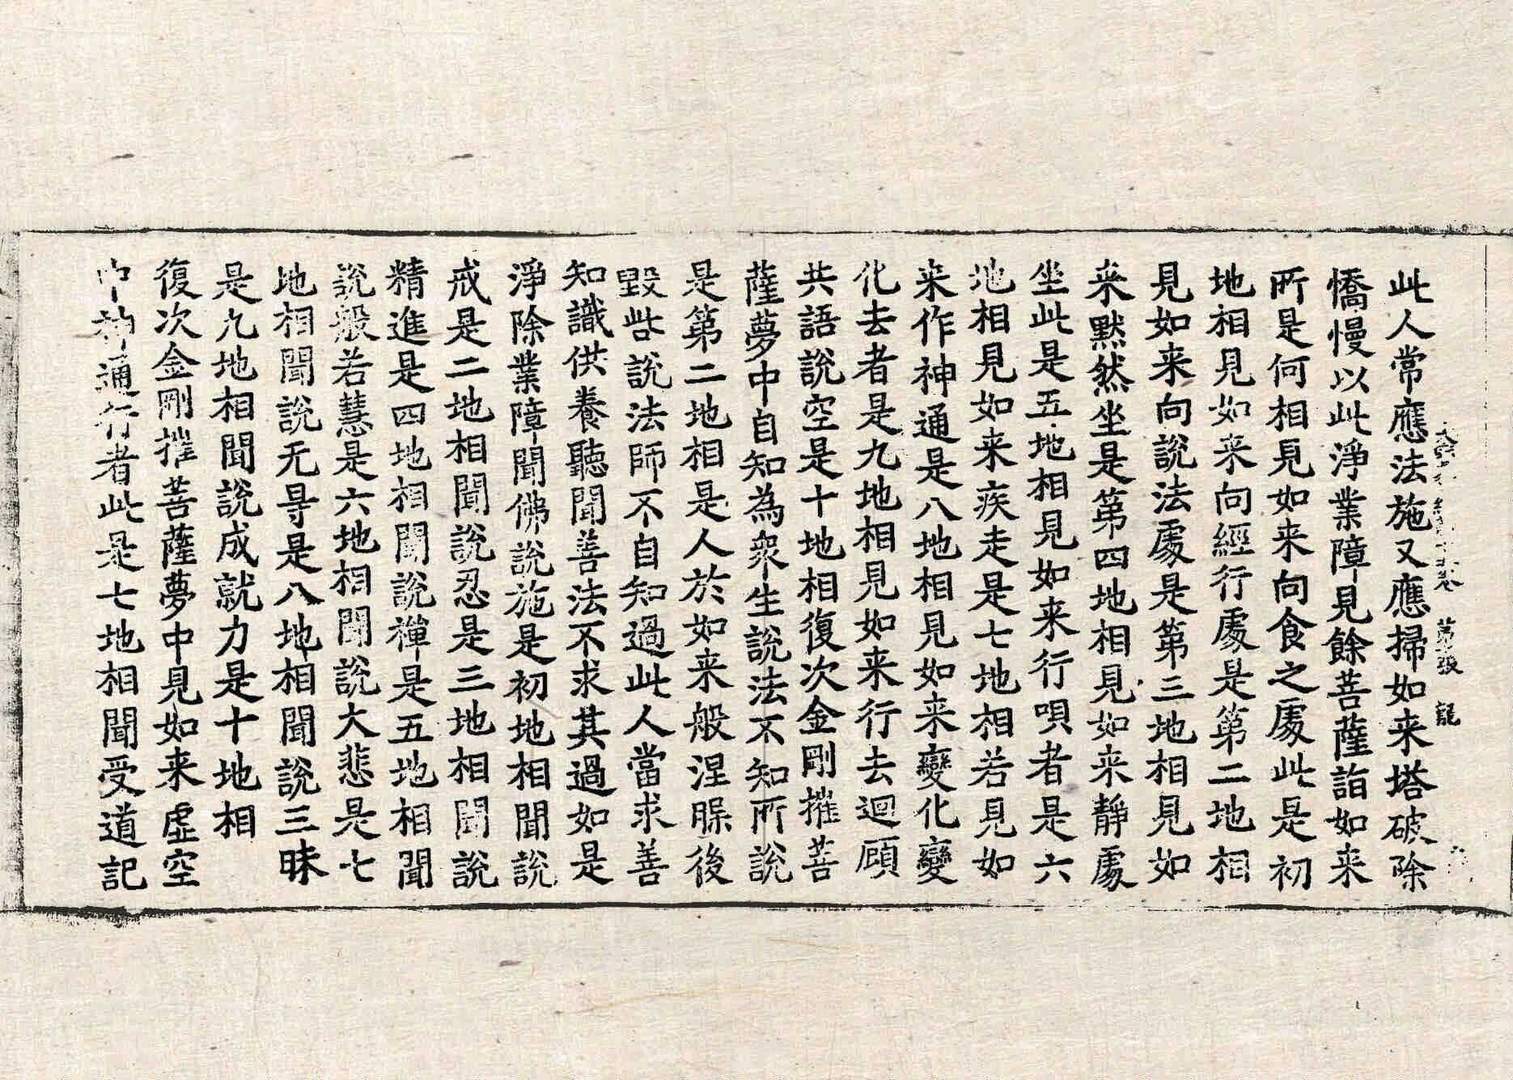 此人常應法施又應掃如来塔破除
憍慢以此淨業障見餘菩薩詣如来
所是何相見如来向食之處此是初
地相見如来向經行處是第二地相
見如来向說法處是第三地相見如
来默然坐是第四地相見如来靜處
坐此是五地相見如来行唄者是六
地相見如来疾走是七地相若見如
来作神通是八地相見如来變化變
化去者是九地相見如来行去迴顧
共語說空是十地相復次金剛摧菩
薩夢中自知為衆生說法不知所說
是第二地相是人於如来般涅睩後
毀呰說法師不自知過此人當求善
知識供養聽聞善法不求其過如是
淨除業障聞佛說施是初地相聞說
戒是二地相聞說忍是三地相聞說
精進是四地相聞說禪是五地相聞
說般若慧是六地相聞說大悲是七
地相聞說无㝵是八地相聞說三昧
是九地相聞說成就力是十地相
復次金剛摧菩薩夢中見如来虛空
中神通行者此是七地相聞受道記